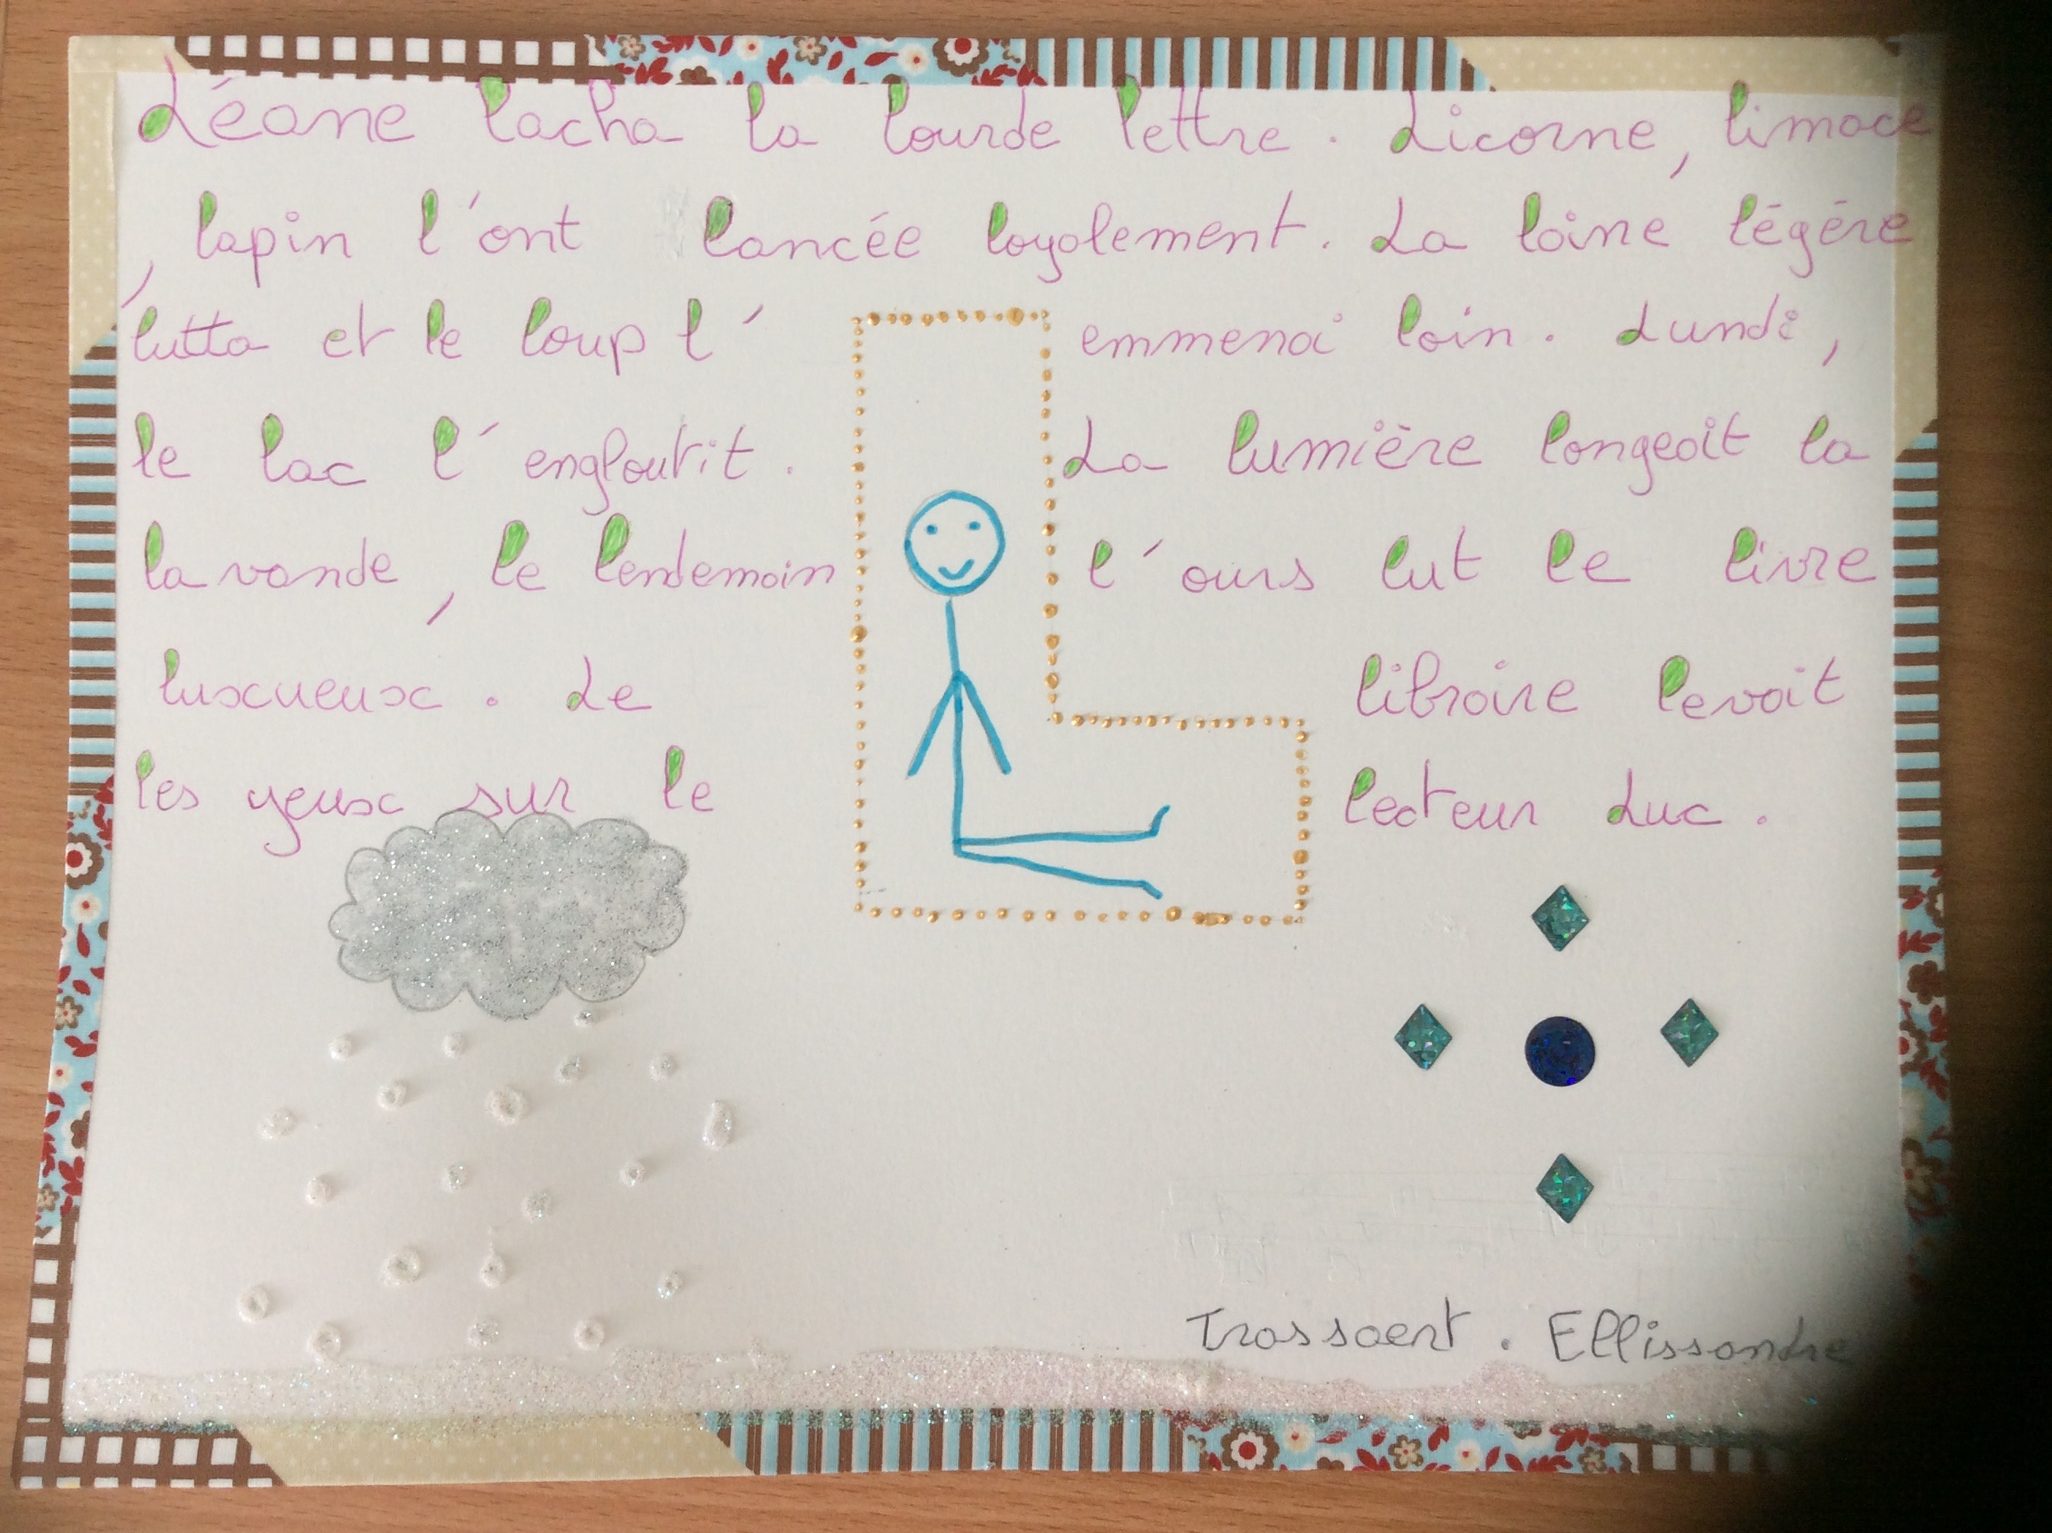 Léane lacha la lourde lettre. Licorne, limace
, lapin l'ont lancée loyalement. La laine légére
lutta et le loup l' emmena loin. Lundi,
le lac l'engloutit. La lumière longeait la
lavande, le lendemain l'ours lut le livre
luxueux. Le libraire levait
les yeux sur le lecteur Luc.
Trassaert. Ellissandre